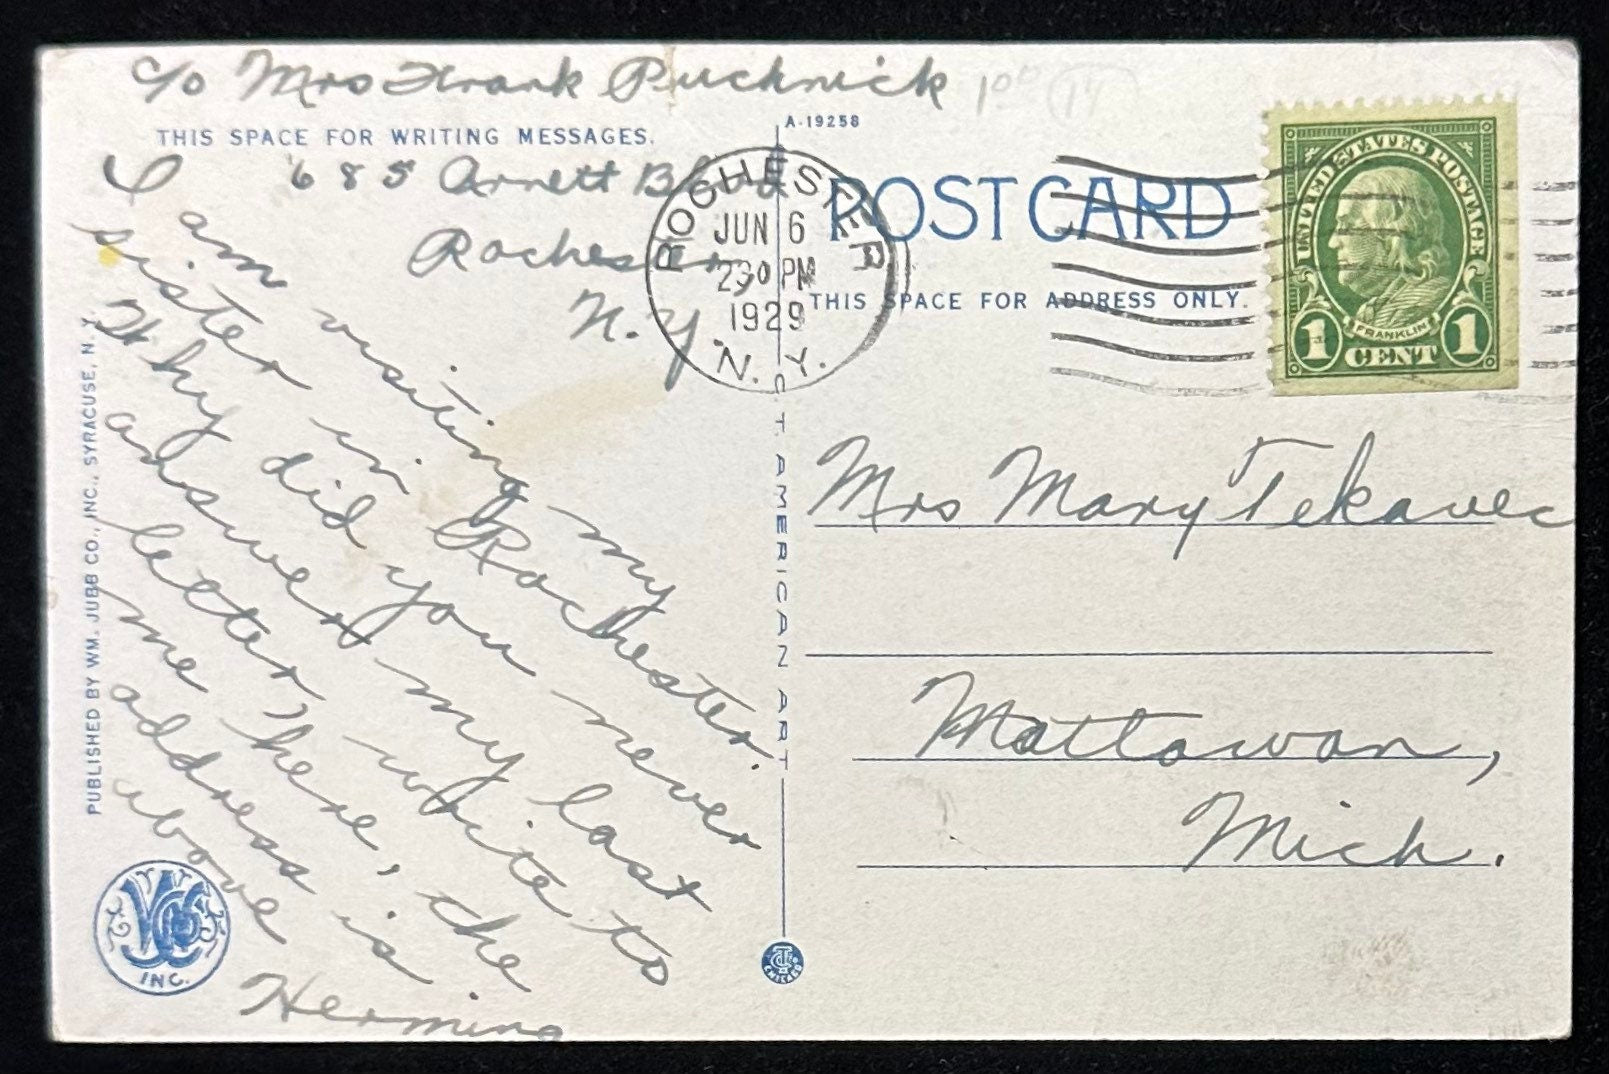 c/o Mrs Frank Puchnick
1⁰⁰
THIS SPACE FOR WRITING MESSAGES.
A-19258
685 Arnett Blvd
Rochester
N.Y.
I am visiting my
sister in Rochester.
Why did you never
answer my last
letter write to
me there, the
address is
above
Hermina
PUBLISHED BY WM. JUBB CO., INC., SYRACUSE, N. Y.
INC.
ROCHESTER
JUN 6
230 PM
1929
N. Y.
C. T. AMERICAN ART
CHICAGO
POST CARD
THIS SPACE FOR ADDRESS ONLY.
UNITED STATES POSTAGE
FRANKLIN
1 CENT 1
Mrs Mary Tekavec
Mattawan,
Mich.